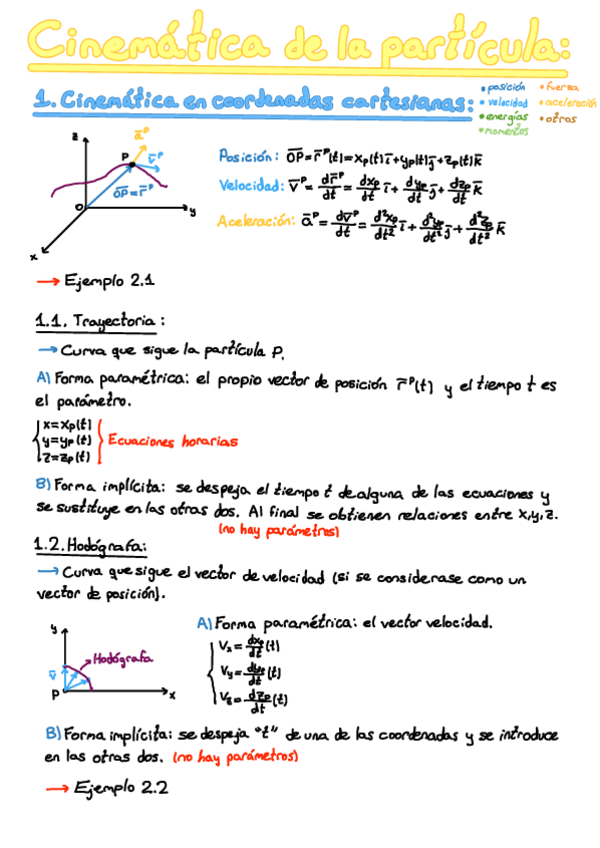 Cinemática de la partícula:
1. Cinemática en coordenadas cartesianas:
• posición • fuerza
• velocidad • aceleración
• energías • otros
• momentos
z
ā^P
P
v̄^P
OP=r̄^P
O
y
x
Posición: OP=r̄^P(t)=xp(t)ī+yp(t)j̄+zp(t)k̄
Velocidad: v̄^P= dr̄^P/dt = dxp/dt ī+ dyp/dt j̄+ dzp/dt k̄
Aceleración: ā^P= dv̄^P/dt = d²xp/dt² ī+ d²yp/dt² j̄+ d²zp/dt² k̄
→ Ejemplo 2.1
1.1. Trayectoria:
→ Curva que sigue la partícula P.
A) Forma paramétrica: el propio vector de posición r̄^P(t) y el tiempo t es
el parámetro.
x=xp(t)
y=yp(t) Ecuaciones horarias
z=zp(t)
B) Forma implícita: se despeja el tiempo t de alguna de las ecuaciones y
se sustituye en las otras dos. Al final se obtienen relaciones entre x,y,z.
(no hay parámetros)
1.2. Hodógrafa:
→ Curva que sigue el vector de velocidad (si se considerase como un
vector de posición).
y
Hodógrafa
v̄
P
x
A) Forma paramétrica: el vector velocidad.
Vx= dxp/dt (t)
Vy= dyp/dt (t)
Vz= dzp/dt (t)
B) Forma implícita: se despeja "t" de una de las coordenadas y se introduce
en las otras dos. (no hay parámetros)
→ Ejemplo 2.2